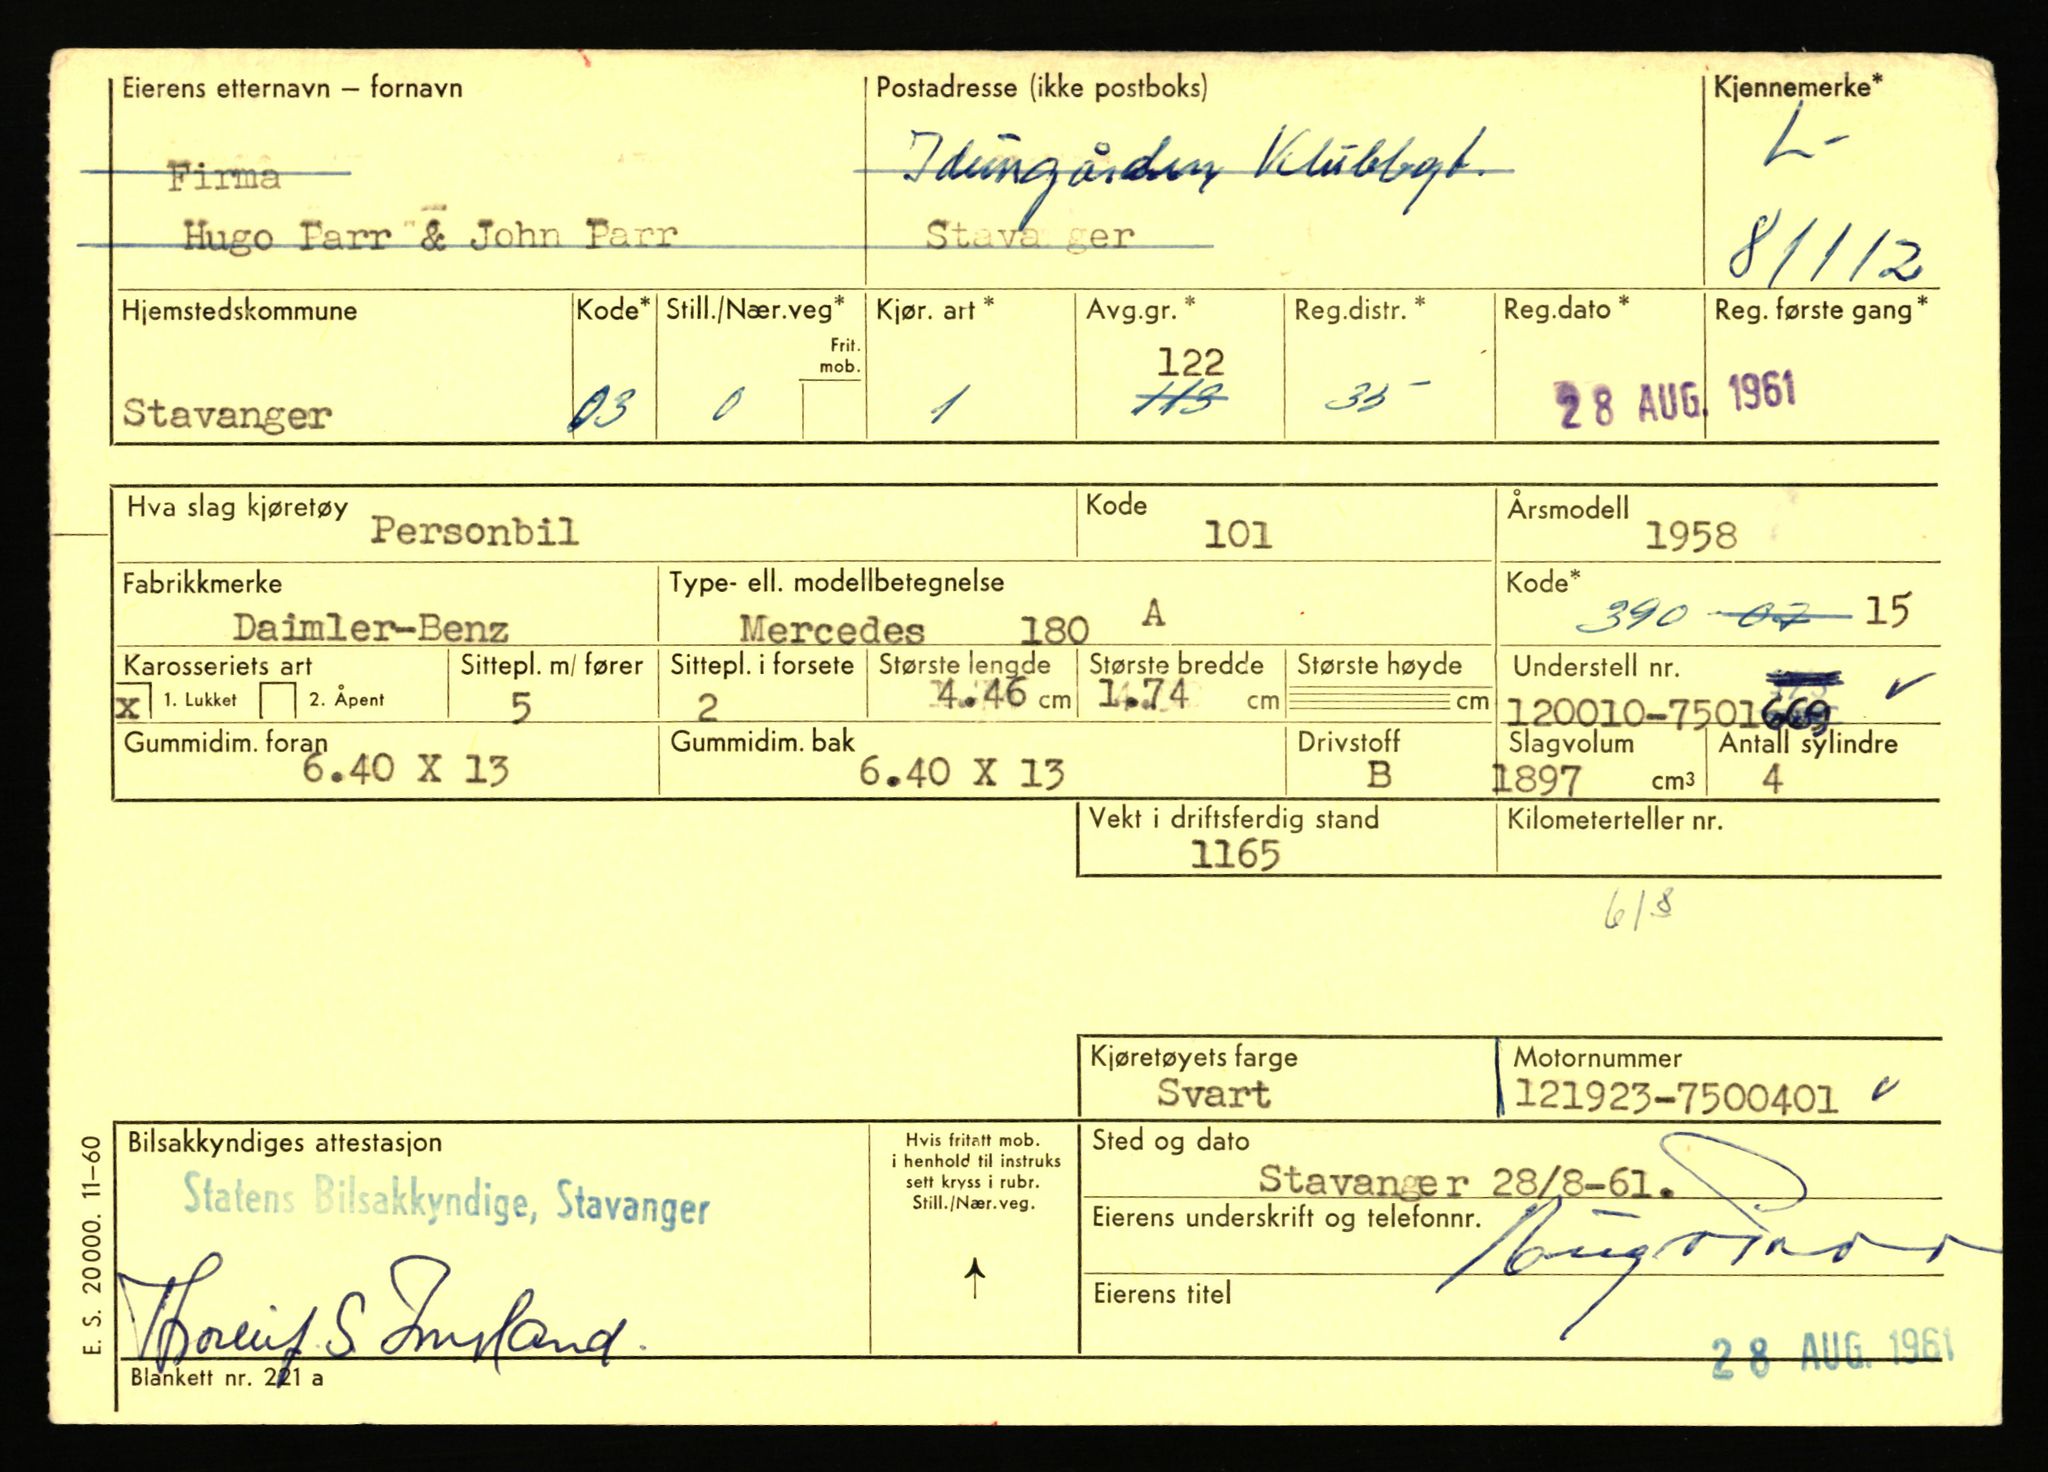 Eierens etternavn – fornavn
Postadresse (ikke postboks)
Kjennemerke*
Firma
Idungården Klubbgt.
L-
Hugo Parr & John Parr
Stavanger
81112
Hjemstedskommune
Kode*
Still./Nær.veg*
Kjør. art *
Avg.gr. *
Reg.distr. *
Reg.dato *
Reg. første gang*
Frit.
mob.
122
Stavanger
03
0
1
113
35
28 AUG. 1961
Hva slag kjøretøy
Personbil
Kode
101
Årsmodell
1958
Fabrikkmerke
Daimler-Benz
Type- ell. modellbetegnelse
Mercedes 180 A
Kode*
390 07 15
Karosseriets art
x 1. Lukket 2. Åpent
Sittepl. m/ fører
5
Sittepl. i forsete
2
Største lengde
4.46 cm
Største bredde
1.74 cm
Største høyde
cm
Understell nr.
120010-7501669
Gummidim. foran
6.40 X 13
Gummidim. bak
6.40 X 13
Drivstoff
B
Slagvolum
1897 cm³
Antall sylindre
4
Vekt i driftsferdig stand
1165
Kilometerteller nr.
6/8
Kjøretøyets farge
Svart
Motornummer
121923-7500401
Bilsakkyndiges attestasjon
Statens Bilsakkyndige, Stavanger
Hvis fritatt mob.
i henhold til instruks
sett kryss i rubr.
Still./Nær.veg.
Sted og dato
Stavanger 28/8-61.
Eierens underskrift og telefonnr.
Hugo Parr
Eierens titel
28 AUG. 1961
E. S. 20000. 11–60
Blankett nr. 221 a